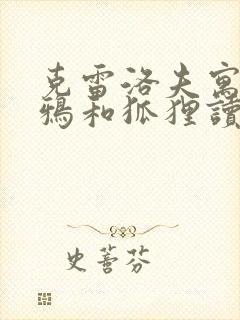 克雷洛夫寓
鴉和狐狸讀
史薈芬